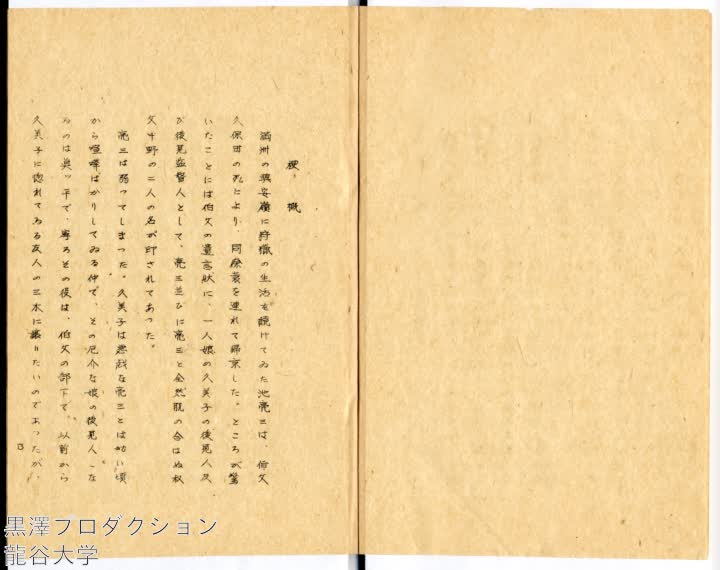 梗概
満洲の興安嶺に狩猟の生活を続けてゐた池亮三は、伯父
久保田の死により、同 を連れて帰京した。ところが驚
いたことには伯父の遺言状に、一人娘の久美子の後見人及
び後見監督人として、亮三並びに亮三と全然肌の合はぬ叔
父牛野の二人の名が印されてあった。
亮三は弱ってしまった。久美子は悪戯な亮三とは幼い頃
から喧嘩ばかりしてゐる仲で、その厄介な娘の後見人にな
るのは真ッ平で、寧ろその役は、伯父の部下で、以前から
久美子に惚れてゐる友人の三木に譲りたいのであったが、
B
黒澤プロダクション
龍谷大学